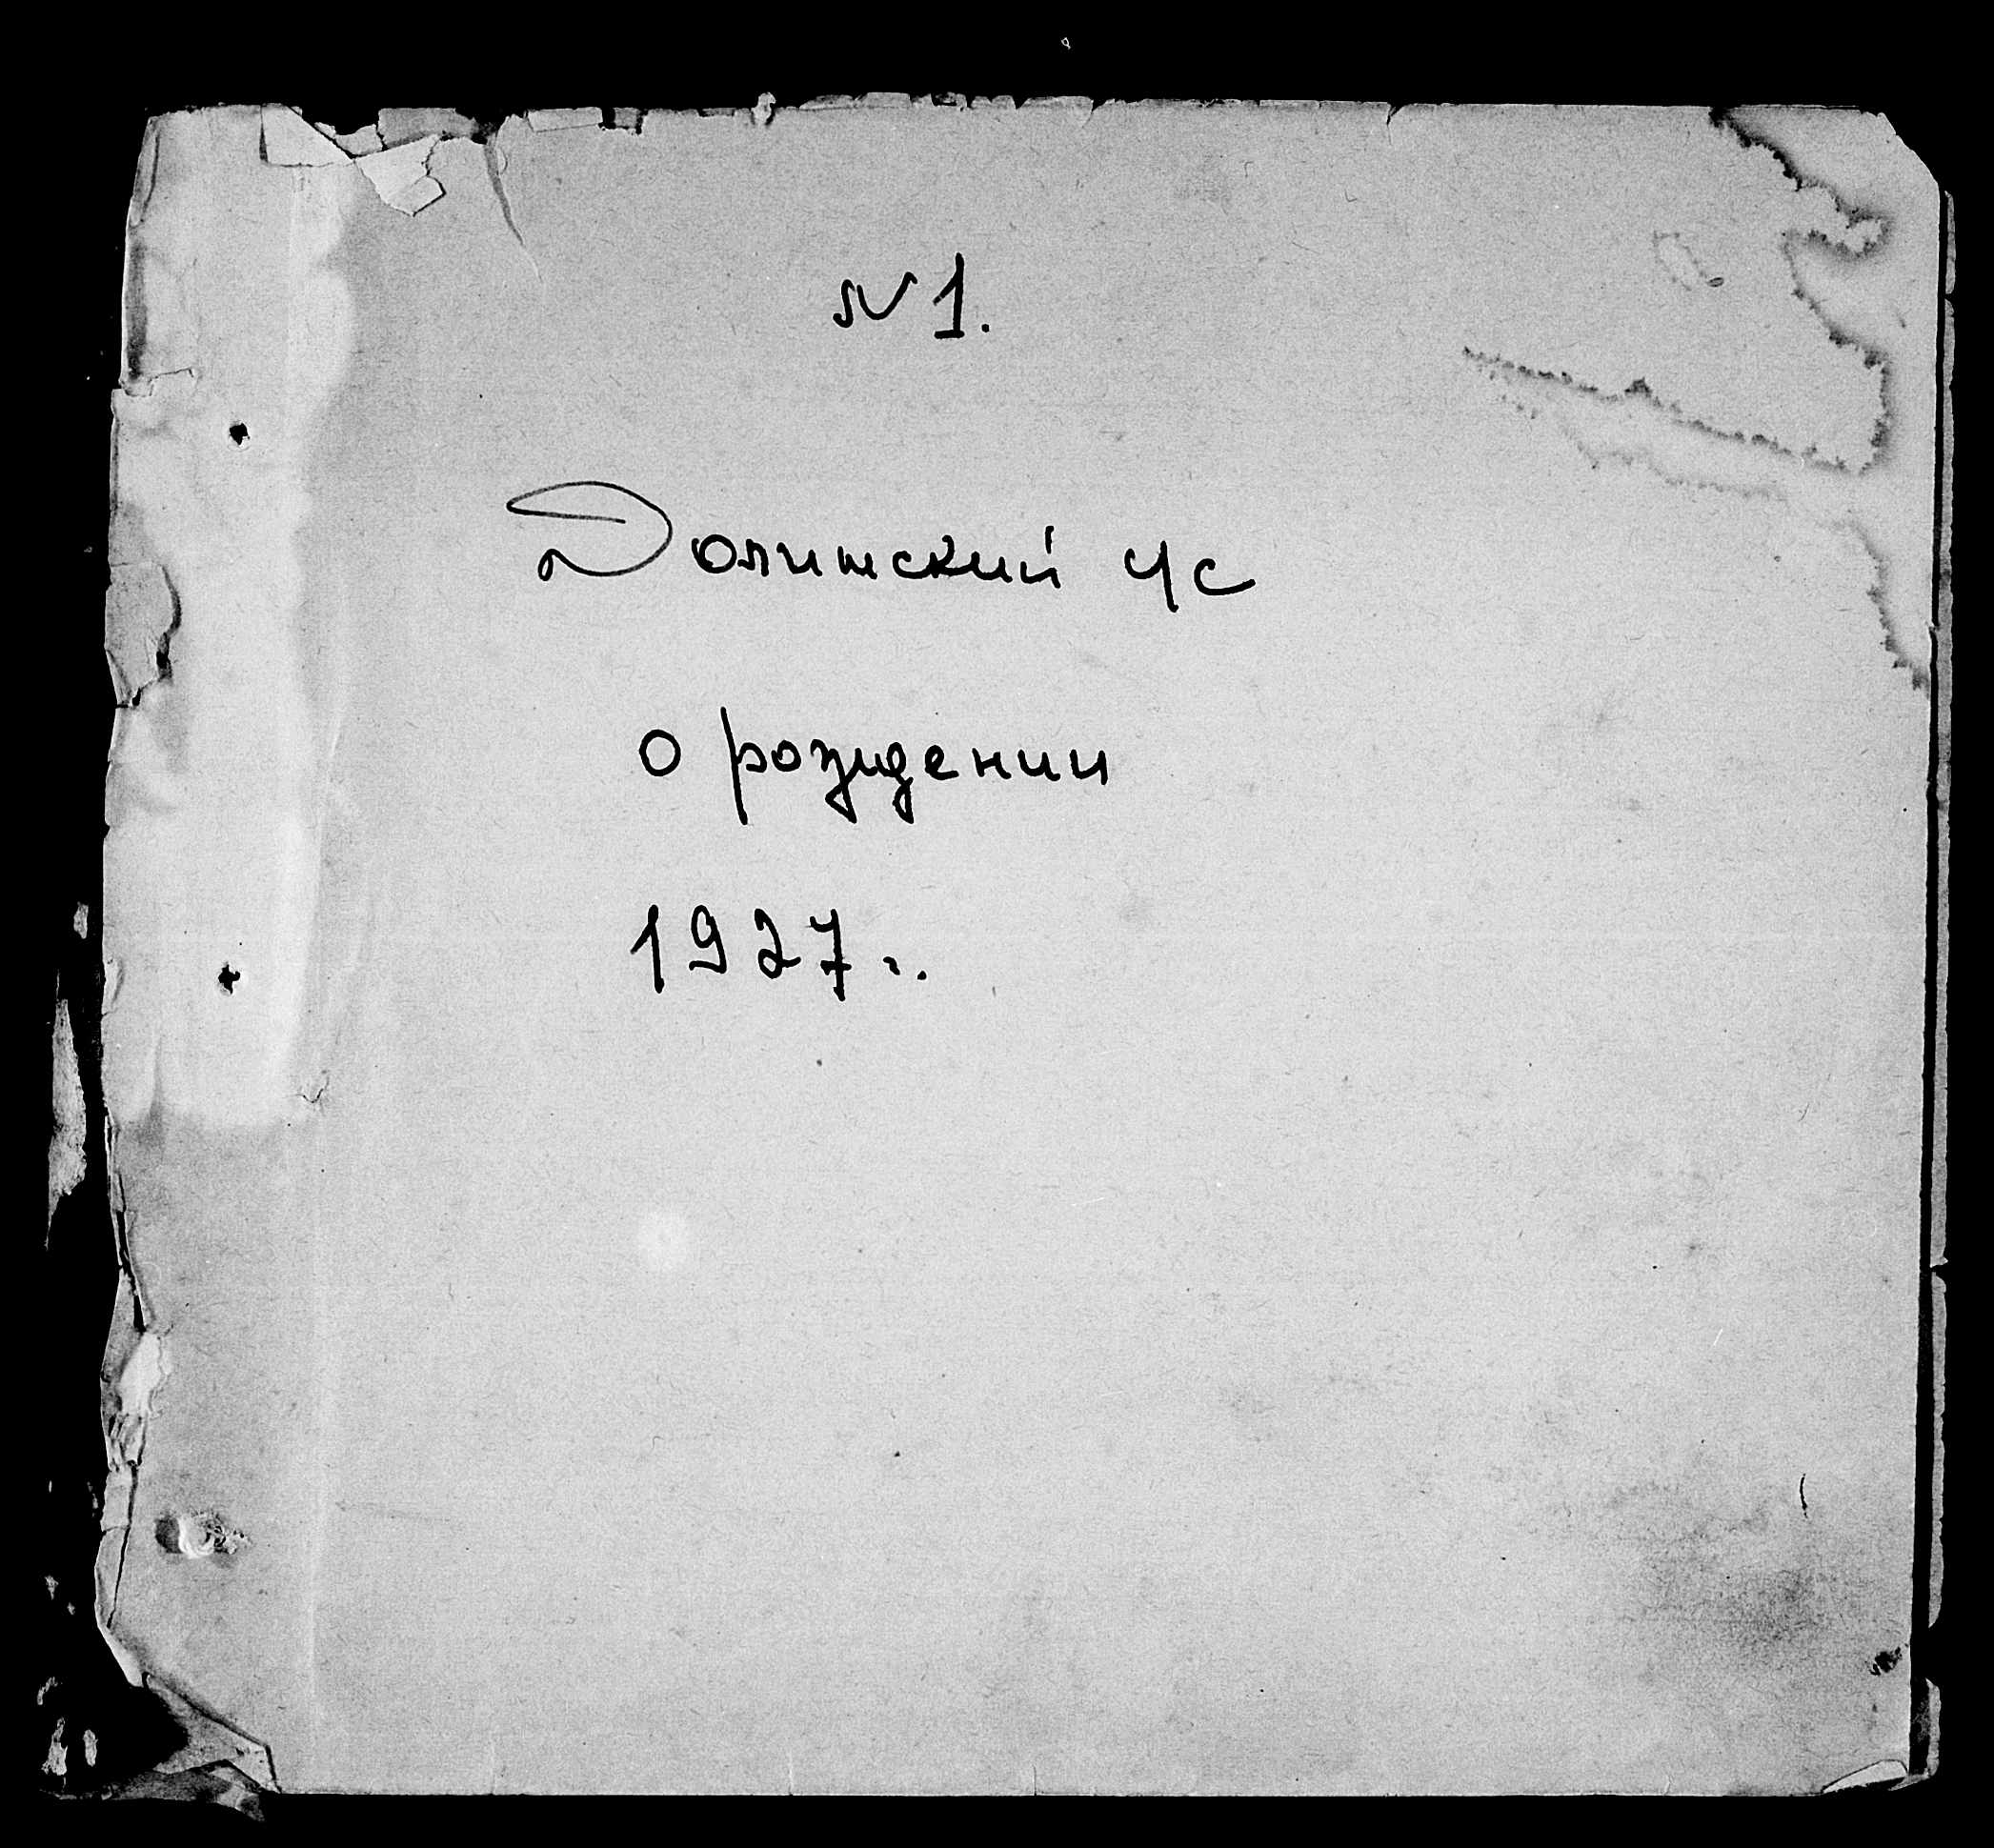 N 1.
Долинский с/с
о рождении
1927 г.